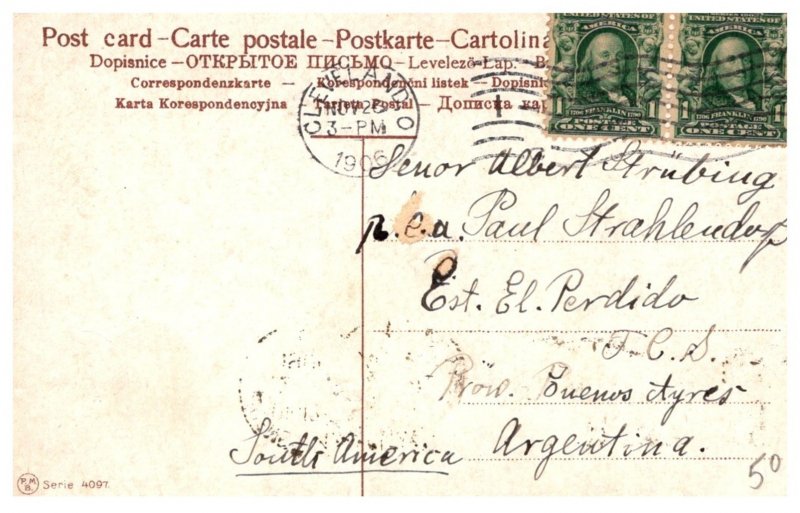 Post card – Carte postale – Postkarte – Cartolina
Dopisnice – ОТКРЫТОЕ ПИСЬМО – Levelező-Lap. B
Correspondenzkarte – Korespondenční listek – Dopisni
Karta Korespondencyjna – Tarjeta Postal – Дописна кар
CLEVELAND, O
NOV 26
3-PM
1906
UNITED STATES OF
AMERICA
1 1706 FRANKLIN 1790 1
ONE CENT
UNITED STATES OF
AMERICA
1 1706 FRANKLIN 1790 1
ONE CENT
Senor Albert Strübing
p.e.a. Paul Strahlendorf
Est. El. Perdido
F.C.S.
Prow. Buenos Ayres
Argentina.
South America
50
P.M.B. Serie 4097.